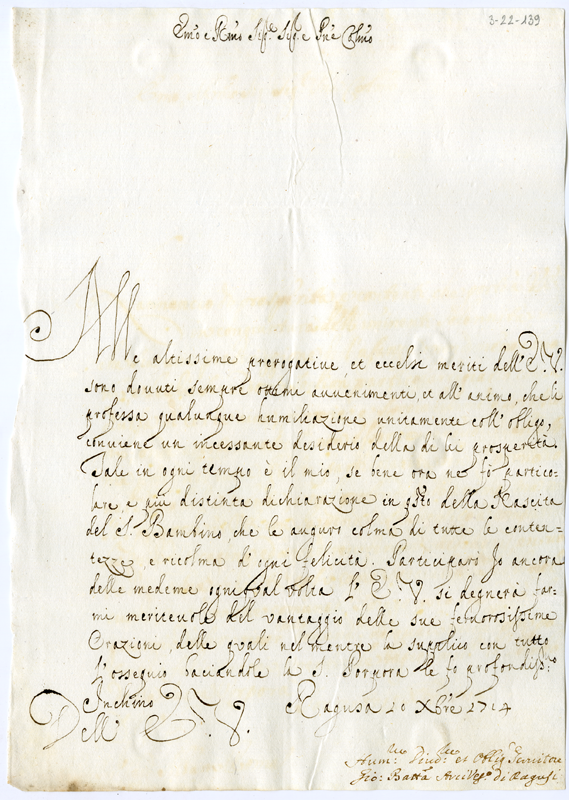 3-22-139
Emo e Rmo Sig.r Sig.r e Pne Colmo
Alle altissime prerogative, et eccelsi meriti dell' E. V.
sono dovuti sempre ottimi auuenimenti, et all' animo, che li
professa qualunque humiliazione unitamente coll' obligo,
conviene un incessante desiderio della di lei prosperità.
Tale in ogni tempo è il mio, se bene ora ne fò partico-
lare, e più distinta dichiarazione in q.sto della Nascita
del S. Bambino, che le auguro colma di tutte le conten-
tezze, e ricolma d'ogni felicità. Participarò Jo ancora
delle medeme ogni qual volta l' E. V. si degnerà far-
mi meritevole del vantaggio delle sue feruorosissime
Orazioni, delle quali nel mentre la supplico con tutto
l'ossequio baciandole la S. Porpora le fò profondiss.o
Inchino Ragusa 20 Xbre 1714
Dell' E. V.
Hum.mo Diuo.mo et Oblig.mo Seruitore
Gio: Batta Arciues.o di Ragusi